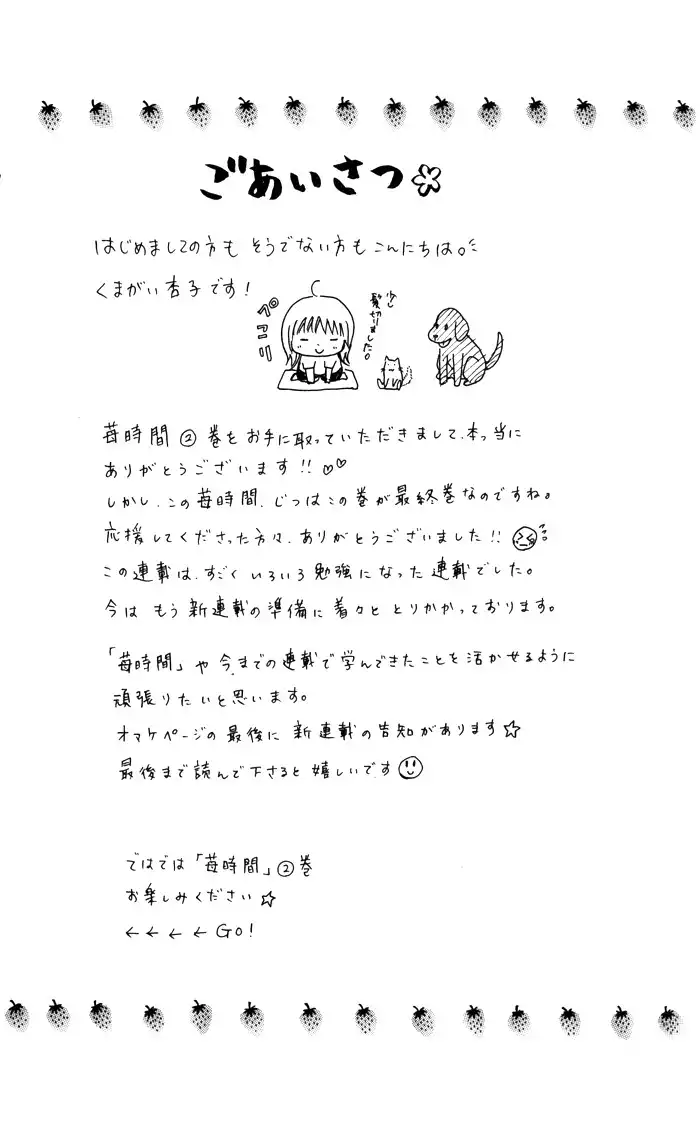 ごあいさつ
はじめましての方も そうでない方も こんにちは。
くまがい杏子です!
ペコリ
少し
髪切りました。
苺時間②巻をお手に取っていただきまして、本っ当に
ありがとうございます!!♡♡
しかし、この苺時間、じつはこの巻が最終巻なのですね。
応援してくださった方々、ありがとうございました!!
この連載は、すごくいろいろ勉強になった連載でした。
今は もう新連載の準備に着々と とりかかっております。
「苺時間」や今までの連載で学んできたことを活かせるように
頑張りたいと思います。
オマケページの最後に 新連載の告知があります☆
最後まで読んで下さると嬉しいです
ではでは「苺時間」②巻
お楽しみください☆
←←←←GO!